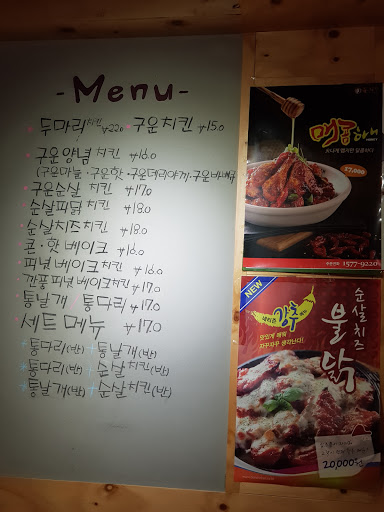 - Menu -
두마리치킨 ₩22.0 구운치킨 ₩15.0
구운양념 치킨 ₩16.0
(구운마늘·구운핫·구운데리야끼·구운바베큐)
구운순살 치킨 ₩17.0
순살파닭 치킨 ₩18.0
순살치즈치킨 ₩18.0
콘·핫 베이크 ₩16.0
파넬베이크치킨 ₩16.0
깐풍파넬베이크치킨 ₩17.0
통날개 통다리 ₩17.0
세트메뉴 ₩17.0
통다리(반) + 통날개(반)
통다리(반) + 순살치킨(반)
통날개(반) + 순살치킨(반)
매콤하니
17,000
1577-9220
NEW
강추
맛있게 매워
자꾸자꾸 생각난다!
순살치즈
불닭
20,000원